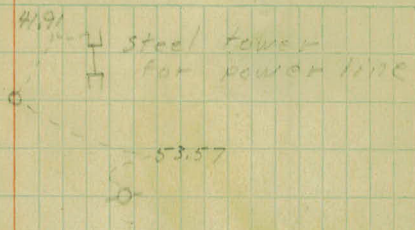 41.91
steel tower
for power line
53.57